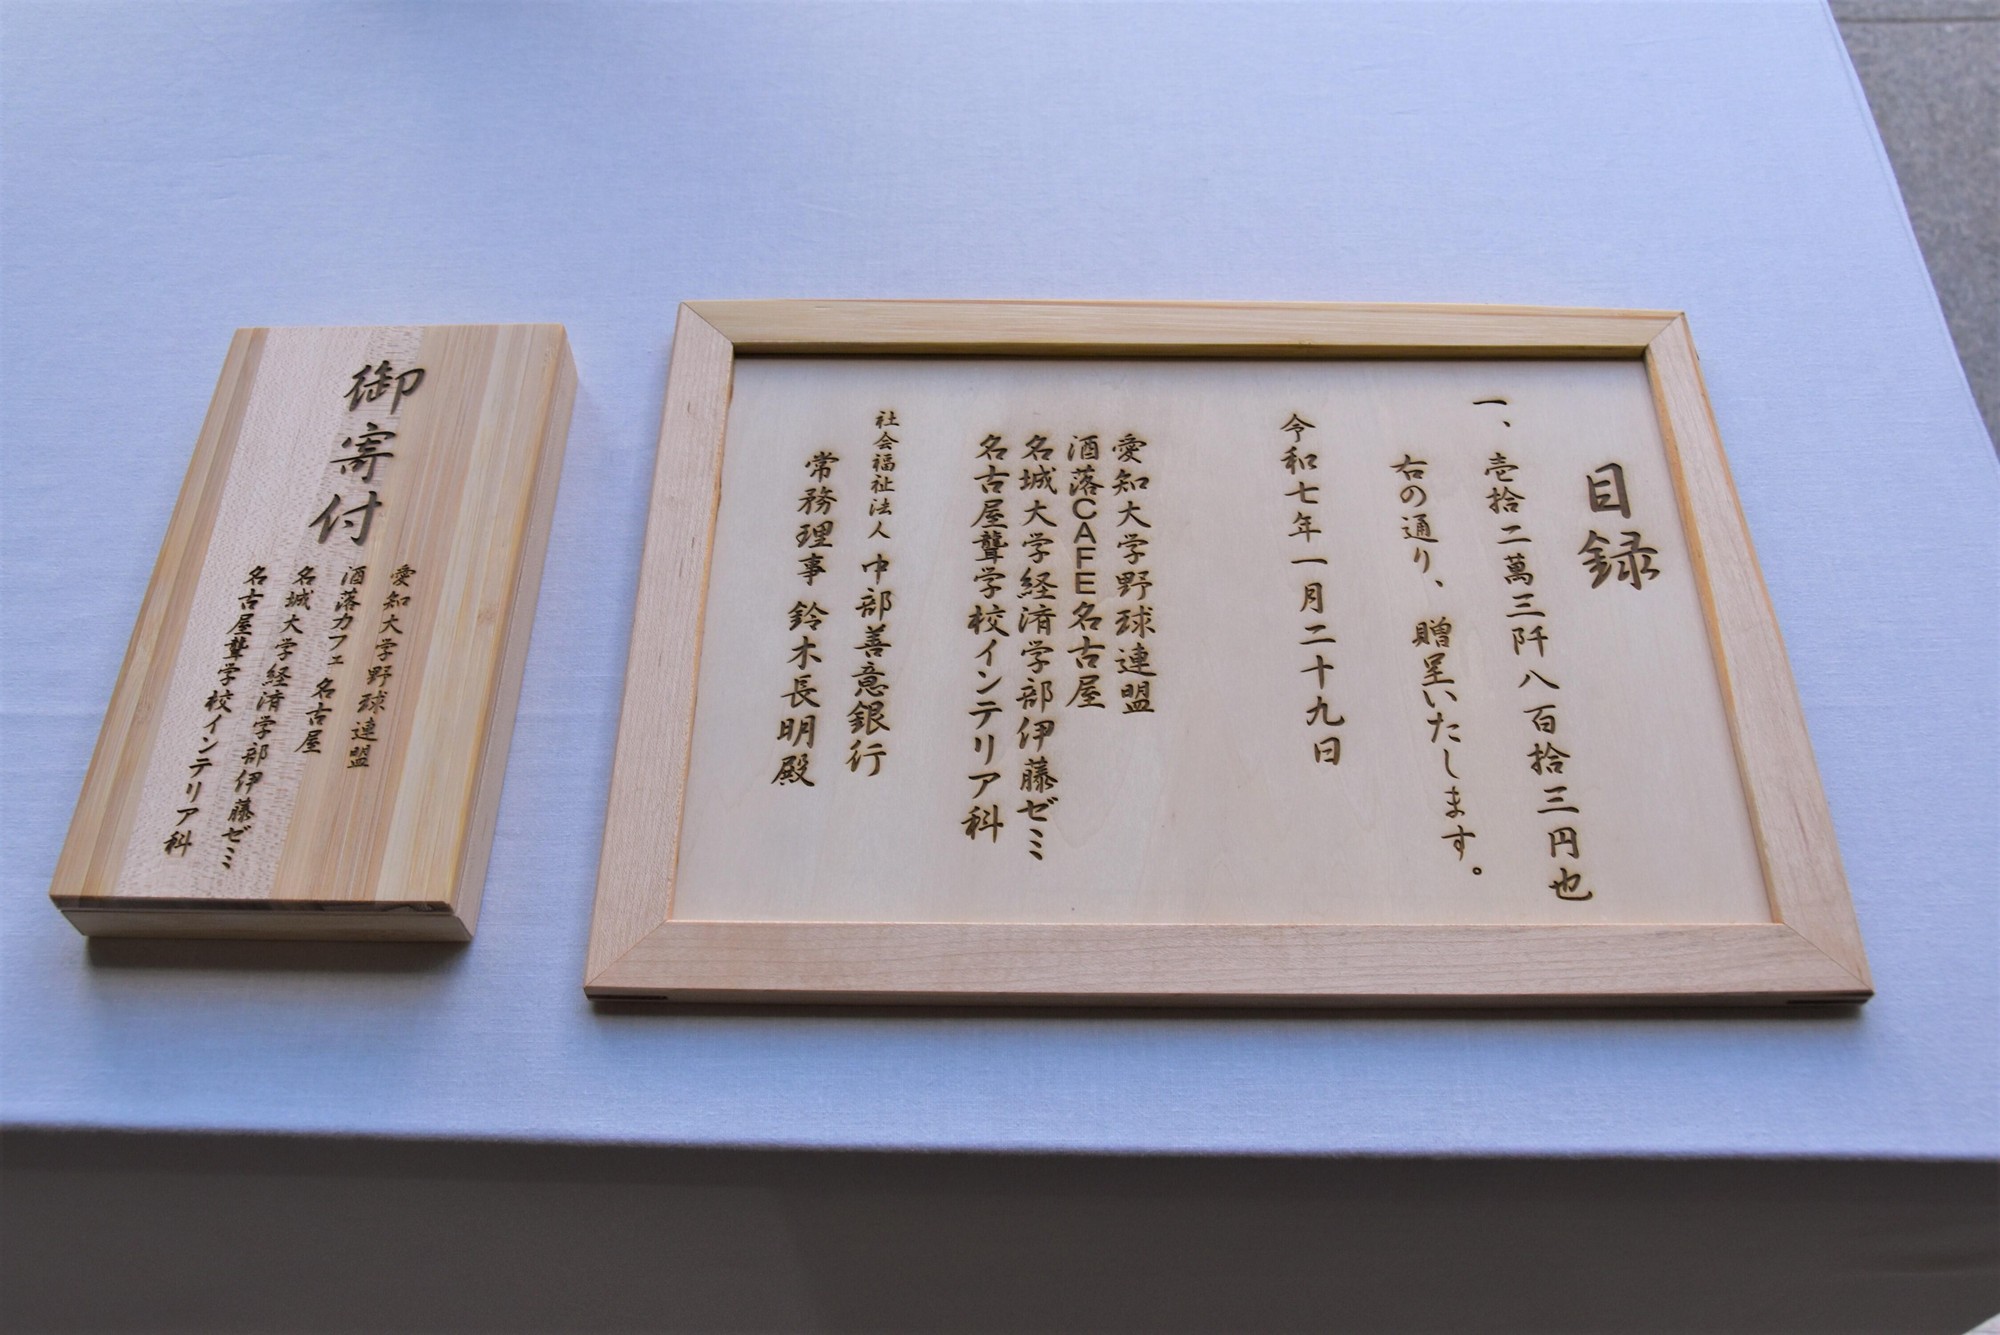 目録
一、壱拾二萬三阡八百拾三円也
右の通り、贈呈いたします。
令和七年一月二十九日
愛知大学野球連盟
酒落CAFE名古屋
名城大学経済学部伊藤ゼミ
名古屋聾学校インテリア科
社会福祉法人 中部善意銀行
常務理事 鈴木長明殿
御寄付
愛知大学野球連盟
酒落カフェ 名古屋
名城大学経済学部伊藤ゼミ
名古屋聾学校インテリア科